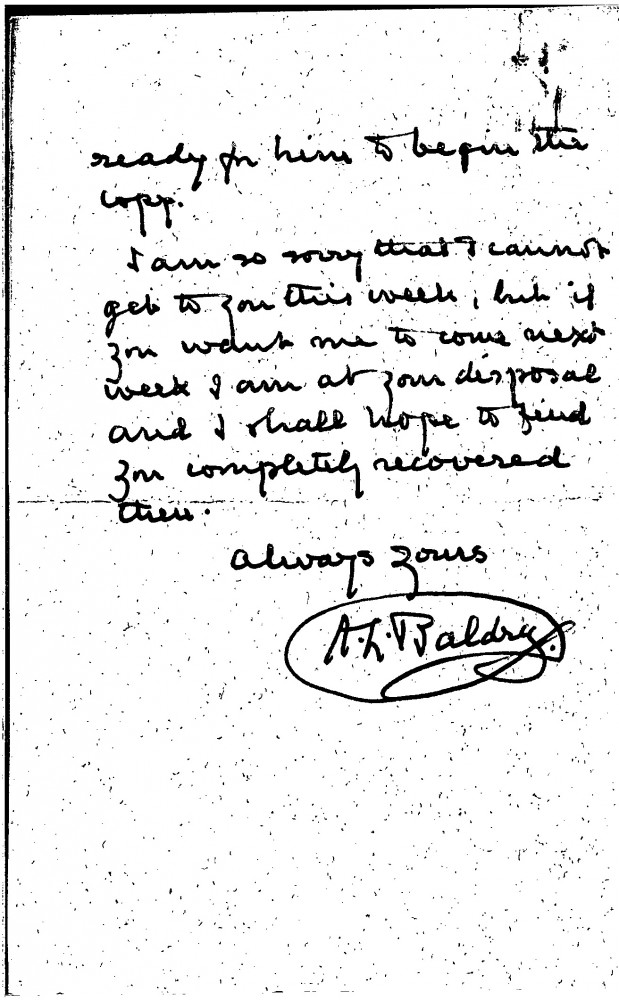 ready for him to begin the
copy.
I am so sorry that I cannot
get to you this week, but if
you want me to come next
week I am at your disposal
and I shall hope to find
you completely recovered
then.
Always yours
A.L. Baldry.